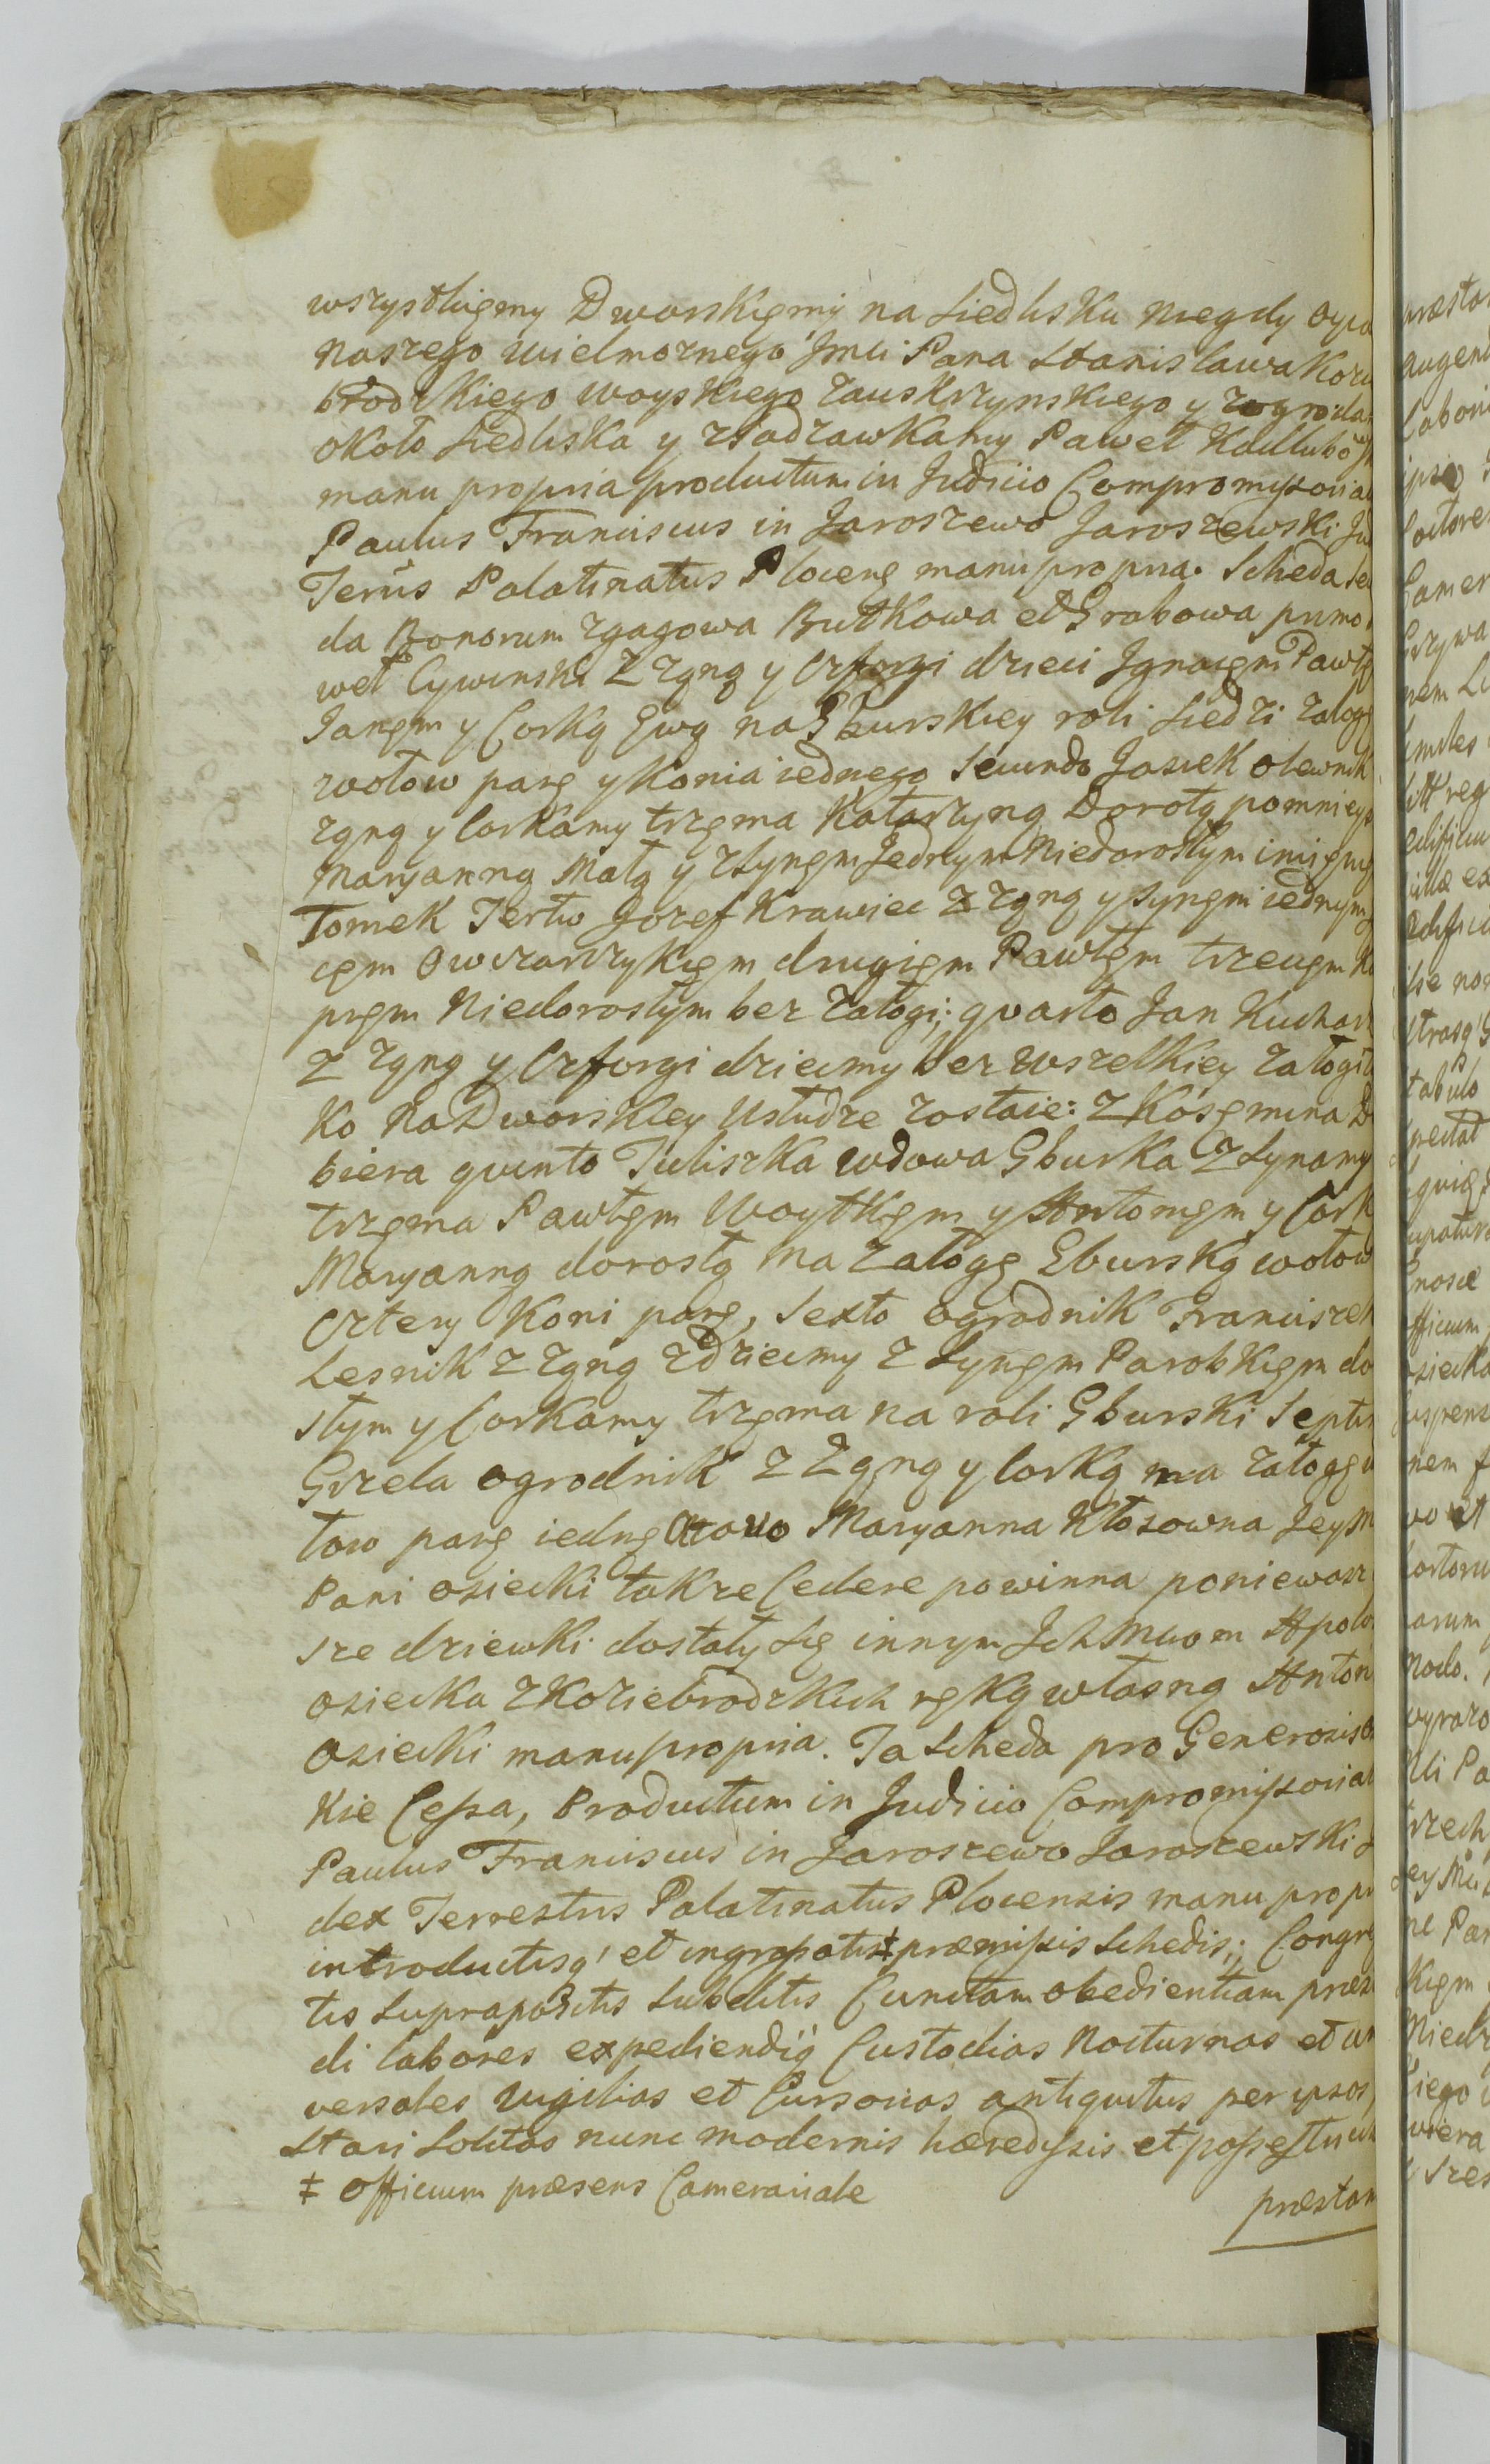 wszystkięmy Dworskięmy na Siedlisku niegdy oyca
naszego wielmoznego Jmci Pana Stanisława Kozie
brodzkiego Woyskiego Zauskrzynskiego y zogroda
około Siedliska y zsadzawkamy Paweł Kadłubo
manu propria productum in Judicio Compromissoria
Paulus Franciscus in Jaroszewo Jaroszewski Ju
Terris Palatinatus Plocens manu propria. Scheda Se
da Bonorum Zgagowa Rutkowa et Grabowa primo
weł Cywinski Z Zęną y Czforgi dzieci Jgnacęm Pawłę
Janęm y Corką Ewą na Gburskiey roli siedzi załogę
wołow parę y Konia iednego Secundo Jasiek olewnik
zęną y Corkamy trzęma Katarzyną Dorotą pomnieys
Maryanną Małą y zSynęm Jednym Niedorosłym imięnię
Tomek Tertio Jozef Krawiec Z Zęną y synęm iednym
cęm Owczarczykięm drugięm Pawłęm trzecięm Ka
pręm Niedorosłym bez Załogi; quarto Jan Kuchar
Z Zęną y Czforgi dziecmy bez wszelkiey załogi
Ko Na Dworskiey Usłudze zostaie: z Kosęmina
biera quinto Juliszka wdowa Gburka Z Synamy
trzęma Pawłęm Woytkięm y Antonięm y Cork
Maryanną dorosłą Ma Załogę Gburską wołow
Cztery Koni parę, Sexto ogrodnik Franciszek
Lesnik Z Zęną Zdziecmy Z Synęm Parobkięm do
słym y Corkamy trzęma na roli Gburski Septi
Grzela ogrodnik Z Zęną y Corką ma załogę
łow parę iednę Octavo Maryanna Kłosowna Jey M
Pani Osiecki takze Cedere powinna poniewasz
sze dziewki dostały się innym Jch Mciom Apolo
Osiecka z Koziebrodzkich ręką własną Anton
Osiecki manu propria. Ta Scheda pro Generosis
Kie Cessa, Productum in Judicio Compromissoria
Paulus Franciscus in Jaroszewo Jaroszewski J
dex Terrestris Palatinatus Plocensis manu propr
introductisq' et ingrossatis ‡ præmissis Schedis; Congre
tis Supraposzitis Subditis Cunctam obedientiam præs
di labores expediendiq' Custodias Nocturnas et
versales Vigilias et Cursorias antiquitus per ipsos
Stari Solitas nunc modernis hæredissis et possess
‡ Officium præsens Camerariale
præstan